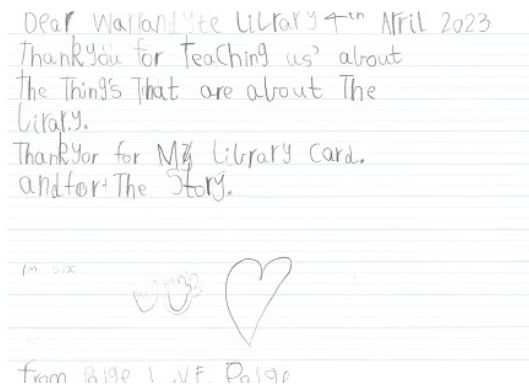 Dear Warrandyte Library 4th April 2023
Thankyou for Teaching us' about
The Thing's That are about The
Lirary.
Thankyor for My Library card.
and for The Story.
Im six
from Paige LOVE Paige